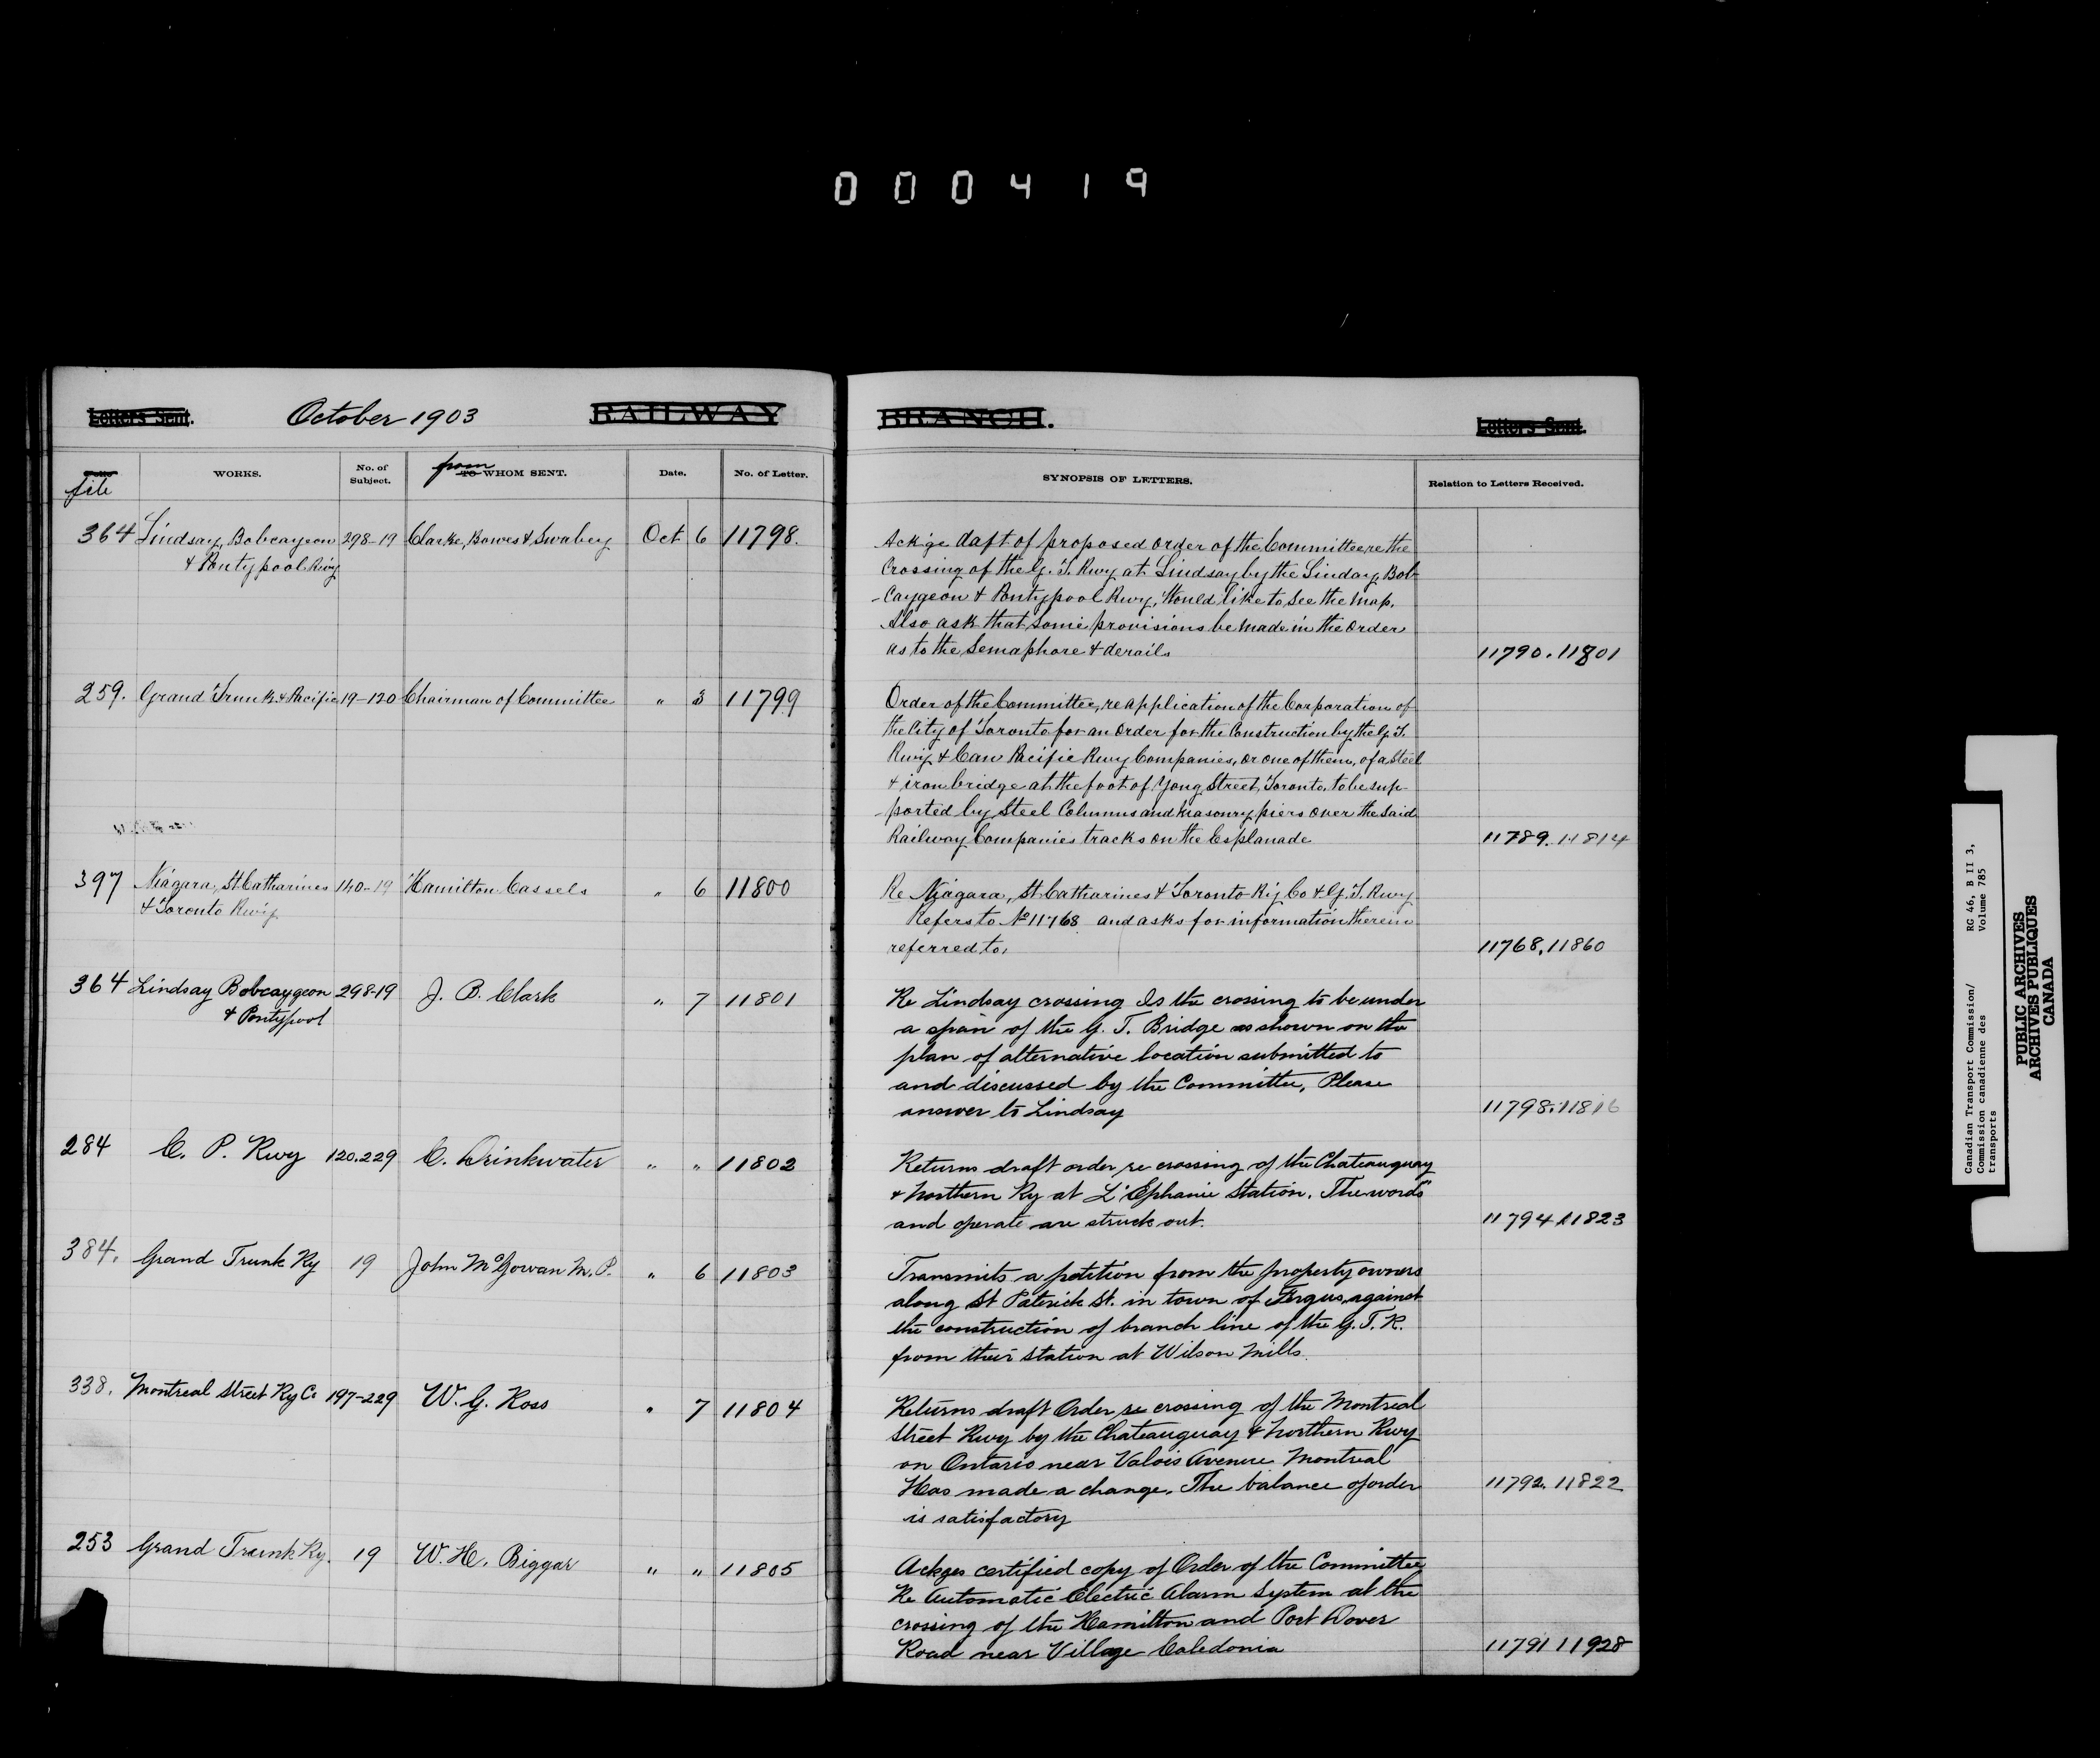 000419
Letters Sent. October 1903 RAILWAY BRANCH. Letters Sent.
file WORKS. No. of Subject. from TO WHOM SENT. Date. No. of Letter. SYNOPSIS OF LETTERS. Relation to Letters Received.
364 Lindsay, Bobcaygeon 298-19 Clarke, Bowes & Swabey Oct 6 11798.
& Pontypool Rwy
Ack'ge daft of proposed order of the Committee re the
Crossing of the G. T. Rwy at Lindsay by the Linday Bob-
-caygeon & Pontypool Rwy, Would like to see the map.
Also ask that some provisions be made in the order
as to the Semaphore & derails 11790. 11801
259. Grand Trunk & Pacific 19-120 Chairman of Committee " 3 11799
Order of the Committee, re application of the Corporation of
the City of Toronto for an order for the Construction by the G. T.
Rwy & Can Pacific Rwy Companies, or one of them, of a steel
& iron bridge at the foot of Yong Street, Toronto, to be sup-
-ported by Steel Columns and masonry piers over the said
Railway Companies tracks on the Esplanade 11789. 11814
397 Niagara, St Catharines 140-19 Hamilton Cassels " 6 11800
& Toronto Rwy
Re Niagara, St Catharines & Toronto Ry Co & G. T. Rwy
Refers to No 11768 and asks for information therein
referred to. 11768, 11860
364 Lindsay Bobcaygeon 298-19 J. B. Clark " 7 11801
& Pontypool
Re Lindsay crossing Is the crossing to be under
a span of the G. T. Bridge as shown on the
plan of alternative location submitted to
and discussed by the Committee, Please
answer to Lindsay 11798. 11816
284 C. P. Rwy 120.229 C. Drinkwater " " 11802
Returns draft order re crossing of the Chateauguay
& Northern Ry at L'Ephanie Station. The words
and operate are struck out. 11794 11823
384. Grand Trunk Ry 19 John McGowan M.P. " 6 11803
Transmits a petition from the property owners
along St Patrick St. in town of Fergus, against
the construction of branch line of the G. T. R.
from their station at Wilson Mills.
338. Montreal Street Ry Co 197-229 W. G. Ross " 7 11804
Returns draft Order re crossing of the Montreal
Street Rwy by the Chateauguay & Northern Rwy
on Ontario near Valois Avenue Montreal
Has made a change. The balance of order 11792. 11822
is satisfactory
253 Grand Trunk Ry. 19 W. H. Biggar " " 11805
Ackges certified copy of Order of the Committee
Re Automatic Electric Alarm System at the
crossing of the Hamilton and Port Dover
Road near Village Caledonia 11791 11928
Canadian Transport Commission/ RG 46, B II 3,
Commission canadienne des Volume 785
transports
PUBLIC ARCHIVES
ARCHIVES PUBLIQUES
CANADA